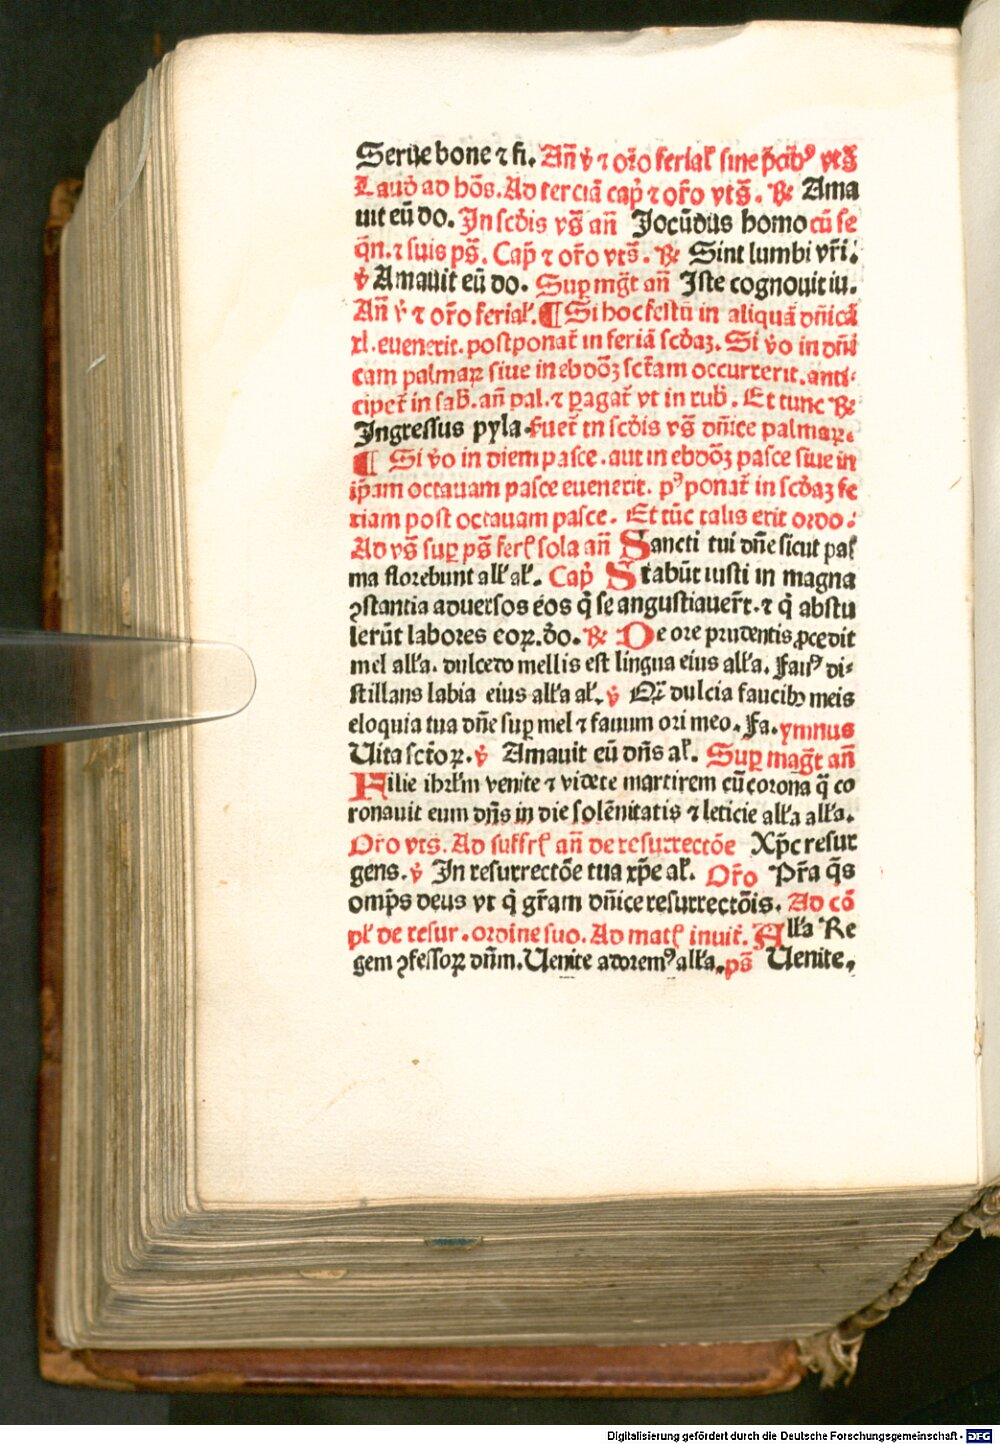 Serue bone ⁊ fi. Añ v̓ ⁊ or̃o ferial̓ sine p̃cib⁹ vts̃
Laud̓ ad hõs. Ad terciã cap̓ ⁊ or̃o vts̃. ℟ Ama
uit eũ do. In scd̓is vs̃ añ Jocũdus homo cũ se
q̃n. ⁊ suis ps̃. Cap̓ ⁊ or̃o vts̃. ℟ Sint lumbi vr̃i.
v̓ Amauit eũ do. Suꝑ mg̃t añ Iste cognouit iu.
Añ v̓ ⁊ or̃o ferial̓. ¶ Si hoc festũ in aliquã dñicã
xl. euenerit. postponat̃ in feriã scd̓aʒ. Si v̓o in dñi
cam palmaꝝ siue in ebdõʒ sct̃am occurrerit. anti-
cipet̃ in sab̓. añ pal. ⁊ ꝑagat̃ vt in rub̓. Et tunc ℟
Ingressus pyla. fuer̃t in scd̓is vs̃ dñice palmaꝝ.
¶ Si v̓o in diem pasce. aut in ebdõʒ pasce siue in
ip̃am octauam pasce euenerit. p⁹ponat̃ in scd̓aʒ fe
riam post octauam pasce. Et tũc talis erit ordo.
Ad vs̃ suꝑ ps̃ ferl̓ sola añ Sancti tui dñe sicut pal
ma florebunt all̓ al̓. Cap̓ Stabũt iusti in magna
ꝯstantia aduersos eos q̓ se angustiauer̃t. ⁊ q̓ abstu
lerũt labores eoꝝ. d̓o. ℟ De ore prudentis ꝓcedit
mel all̓a. dulcedo mellis est lingua eius all̓a. Fau⁹ di-
stillans labia eius all̓a al̓. v̓ Q̃ dulcia faucib⁹ meis
eloquia tua dñe suꝑ mel ⁊ fauum ori meo. Fa. ymnus
Uita sct̃oꝝ. v̓ Amauit eũ dñs al̓. Suꝑ mag̃t añ
Filie ihrl̓m venite ⁊ videte martirem cũ corona q̃ co
ronauit eum dñs in die solẽnitatis ⁊ leticie all̓a all̓a.
Or̃o vts̃. Ad suffrl̓ añ de resurrectõe Xp̃c resur
gens. v̓ In resurrectõe tua xp̃e al̓. Or̃o Pr̃a q̃s
omp̃s deus vt q̓ gr̃am dñice resurrectõis. Ad cõ
pl̓ de resur. ordine suo. Ad matl̓ inuit̃. All̓a Re
gem ꝯfessoꝝ dñm. Uenite adorem⁹ all̓a. ps̃ Uenite.
Digitalisierung gefördert durch die Deutsche Forschungsgemeinschaft - DFG